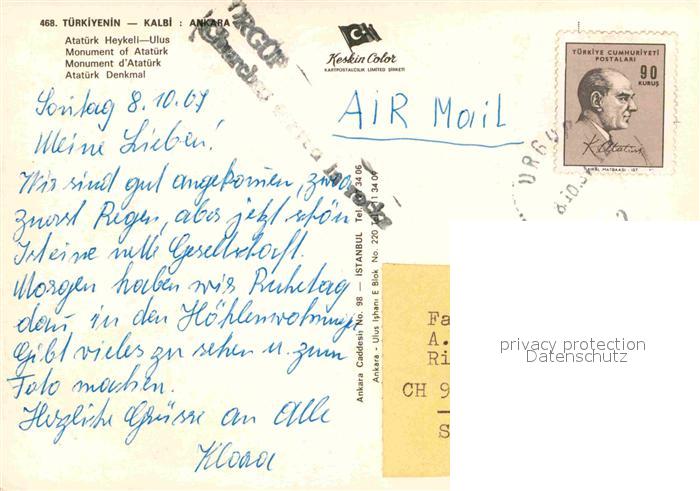 468. TÜRKİYENİN — KALBİ : ANKARA
Atatürk Heykeli—Ulus
Monument of Atatürk
Monument d'Atatürk
Atatürk Denkmal
ÜRGÜP
Churches carved in rocks
Keskin Color
KARTPOSTALCILIK LİMİTED ŞİRKETİ
TÜRKİYE CUMHURİYETİ
POSTALARI
90
KURUŞ
K. Atatürk
ÜRGÜP
AIR Mail
Sontag 8.10.67
Meine Lieben!
Wir sind gut angekomen, zwar
zuerst Regen, aber jetzt schön
Ist eine nette Gesellschaft.
Morgen haben wir Ruhetag
dan in den Höhlenwohnungen
Gibt vieles zu sehen u. zum
Foto machen.
Herzliche Grüsse an Alle
Klara
Ankara Caddesi No. 98 — İSTANBUL Tel.
Ankara - Ulus İşhanı E Blok No. 220
Fa
A.
Ri
CH 9
S
privacy protection
Datenschutz